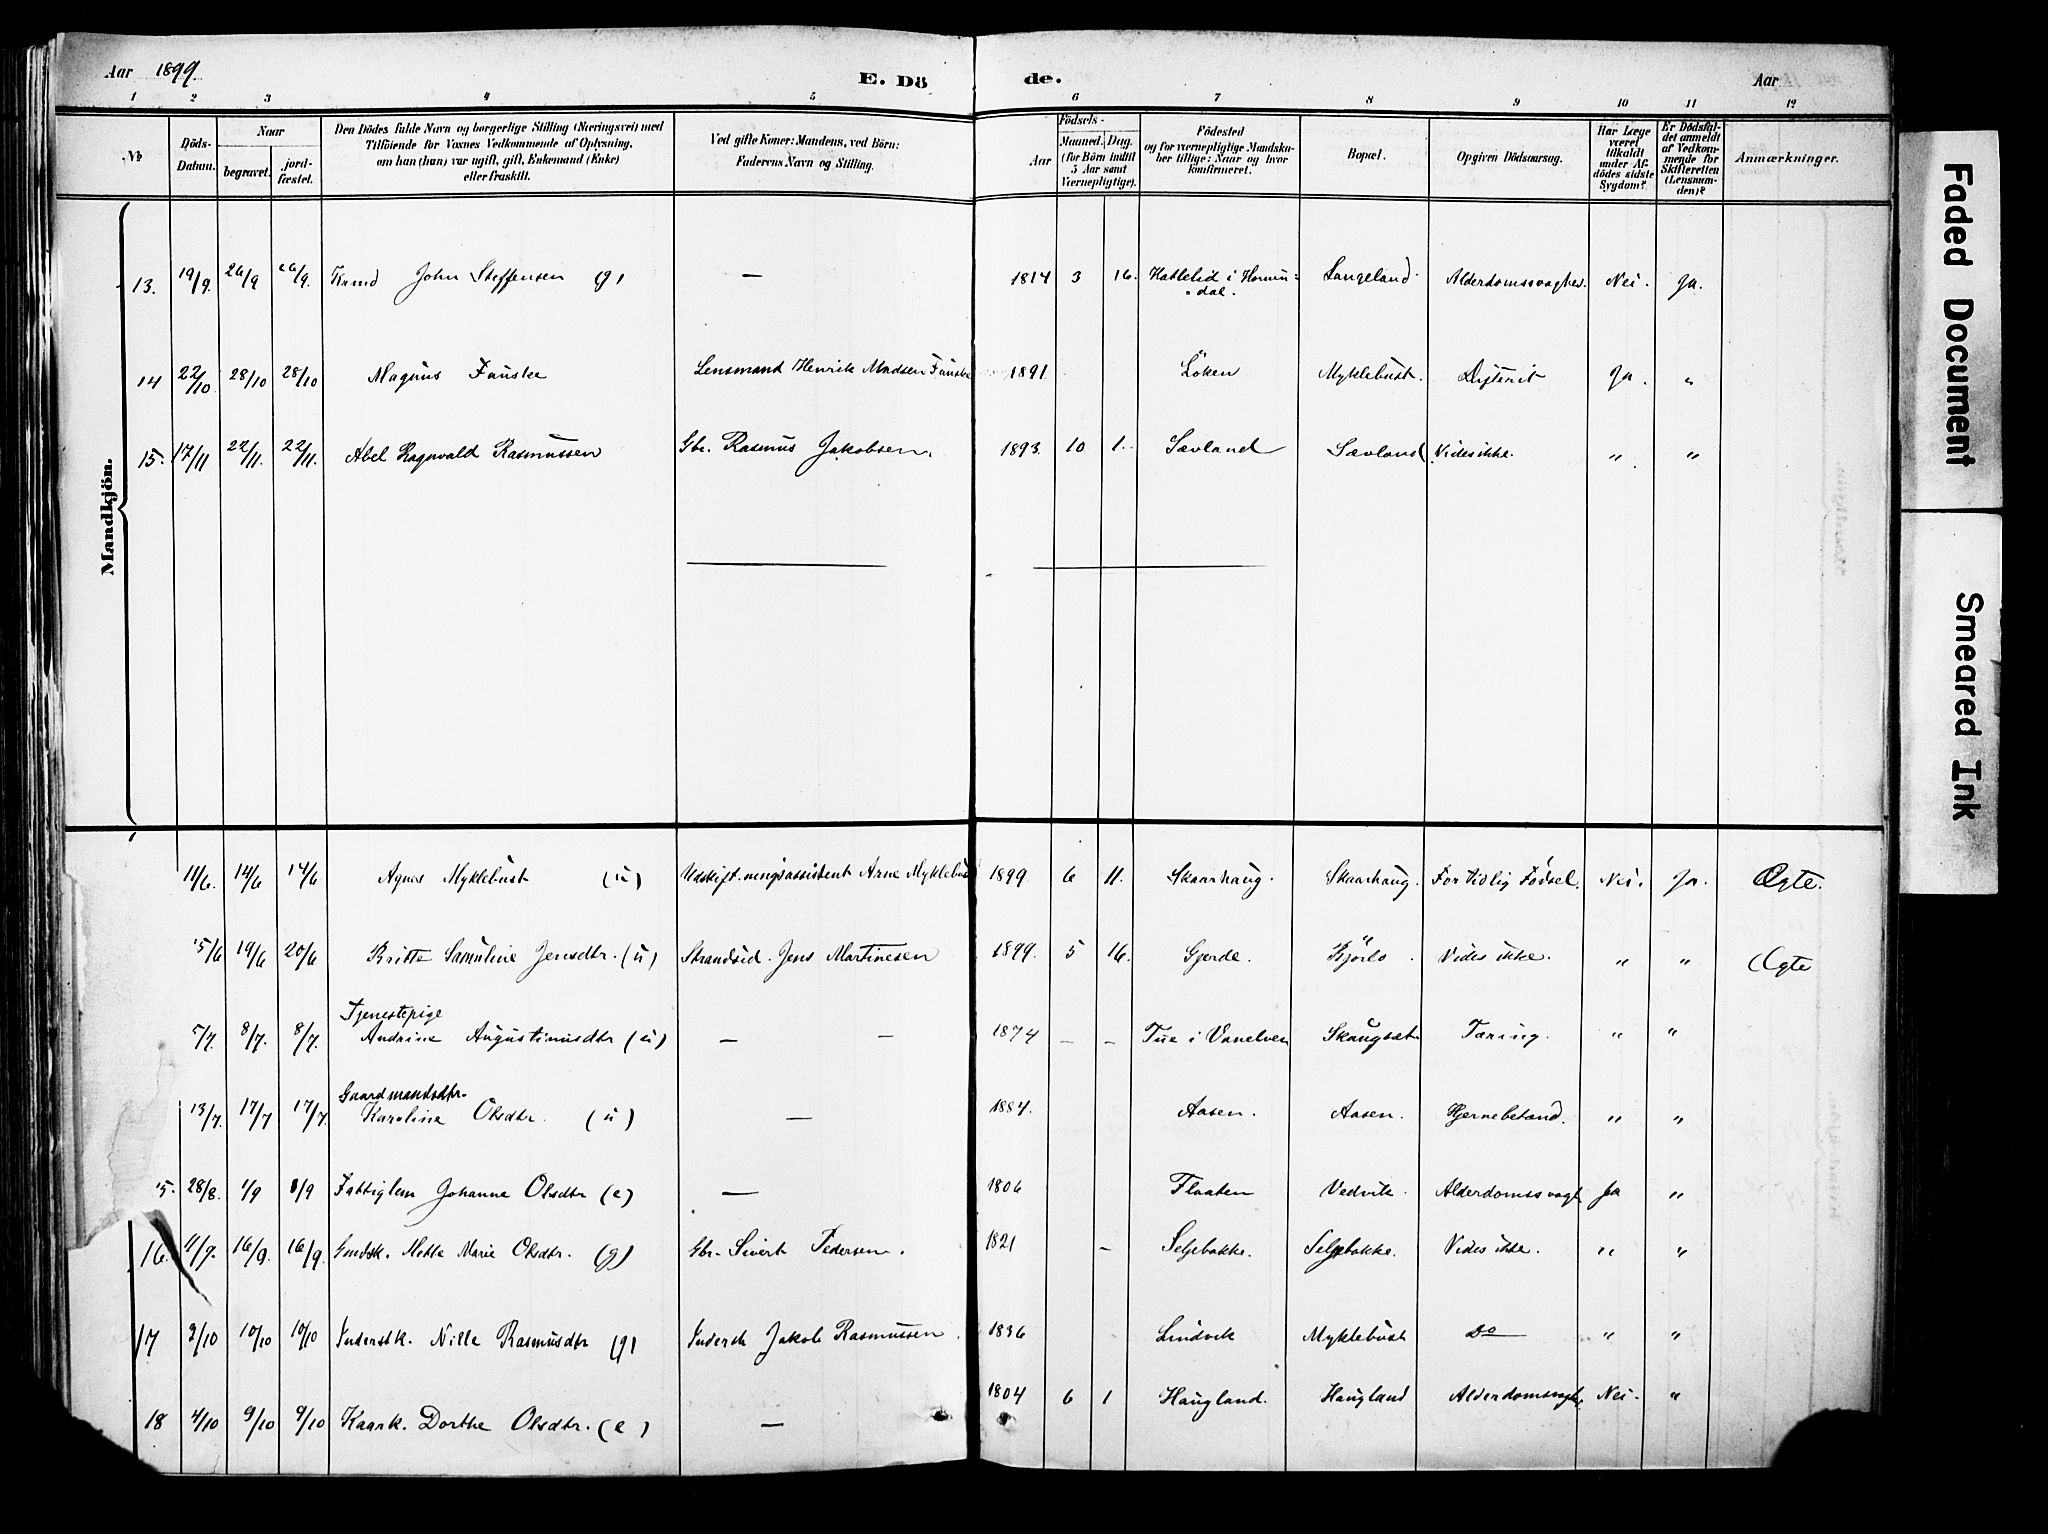 Aar 1899.
E. Dö
de.
Aar
1 2 3 4 5 6 7 8 9 10 11 12
No
Döds-
Datum.
Naar
begravet.
jord-
fæstet.
Den Dödes fulde Navn og borgerlige Stilling (Næringsvei) med
Tilföiende for Voxnes Vedkommende af Oplysning,
om han (hun) var ugift, gift, Enkemand (Enke)
eller fraskilt.
Ved gifte Koner: Mandens, ved Börn:
Faderens Navn og Stilling.
Födsels-
Aar
Maaned. Dag.
(for Börn indtil
5 Aar samt
Værnepligtige).
Födested
og for værnepligtige Mandska-
ber tillige: Naar og hvor
konfirmeret.
Bopæl.
Opgiven Dödsaarsag.
Har Læge
været
tilkaldt
under Af-
dödes sidste
Sygdom?
Er Dödsfal-
det anmeldt
af Vedkom-
mende for
Skifteretten
(Lensman-
den)?
Anmærkninger.
Mandkjön.
13. 19/9. 26/9 26/9. John Steffensen (g) — 1814 3 16. i Hornin-
dal. Langeland. Alderdomssvaghed. Nei. Ja.
14 22/10 28/10 28/10 Magnus Fauske Lensmand Henrik Madsen Fauske 1891. Löken Myklebust. Ja. "
15. 17/11 22/11. 22/11. Abel Ragnvald Rasmussen Gbr. Rasmus Jakobsen. 1893. 10 1. Sævland Sævland Vides ikke. " "
11/6. 14/6 14/6 Agnes Myklebust (u) Udskiftningsassistent Arne Myklebust 1899. 6 11. Skaarhaug. Skaarhaug. For tidlig Födsel. Nei. Ja. Ægte.
15/6 19/6 20/6 Samuline Jensdtr. (u) Strandsid. Jens Martinesen 1899. 5 16. Gjerde. Vides ikke. " " Ægte
Tjenestepige
5/7. 8/7. 8/7. Andrine Augustinusdtr (u) — — 1874 — — Tue i Vanelven Skaugsæt Tæring. " "
Gaardmandsdtr.
13/7. 17/7 17/7. Karoline Olsdtr. (u) — 1884. Aasen. Aasen. Hjernebetænd. " "
15. 28/8. 1/9 1/9 Fattiglem Johanne Olsdtr (e) — 1806 Flaaten Vedvik. Alderdomssvagh Ja "
16. 11/9. 16/9. 16/9. Mette Marie Olsdtr. (g) Gbr. Sivert Pedersen. 1821 — Seljebakke. Seljebakke. Vides ikke. " "
17 2/10 10/10 10/10 Inderstk. Nille Rasmusdtr (g) Inderst Jakob Rasmussen. 1836 Lindvik Myklebust Do " "
18 4/10 9/10 9/10 Kaark. Dorthe Olsdtr. (e) — 1804 6 1 Haugland. Haugland Alderdomssvagh. Nei. "
Faded Document
Smeared Ink